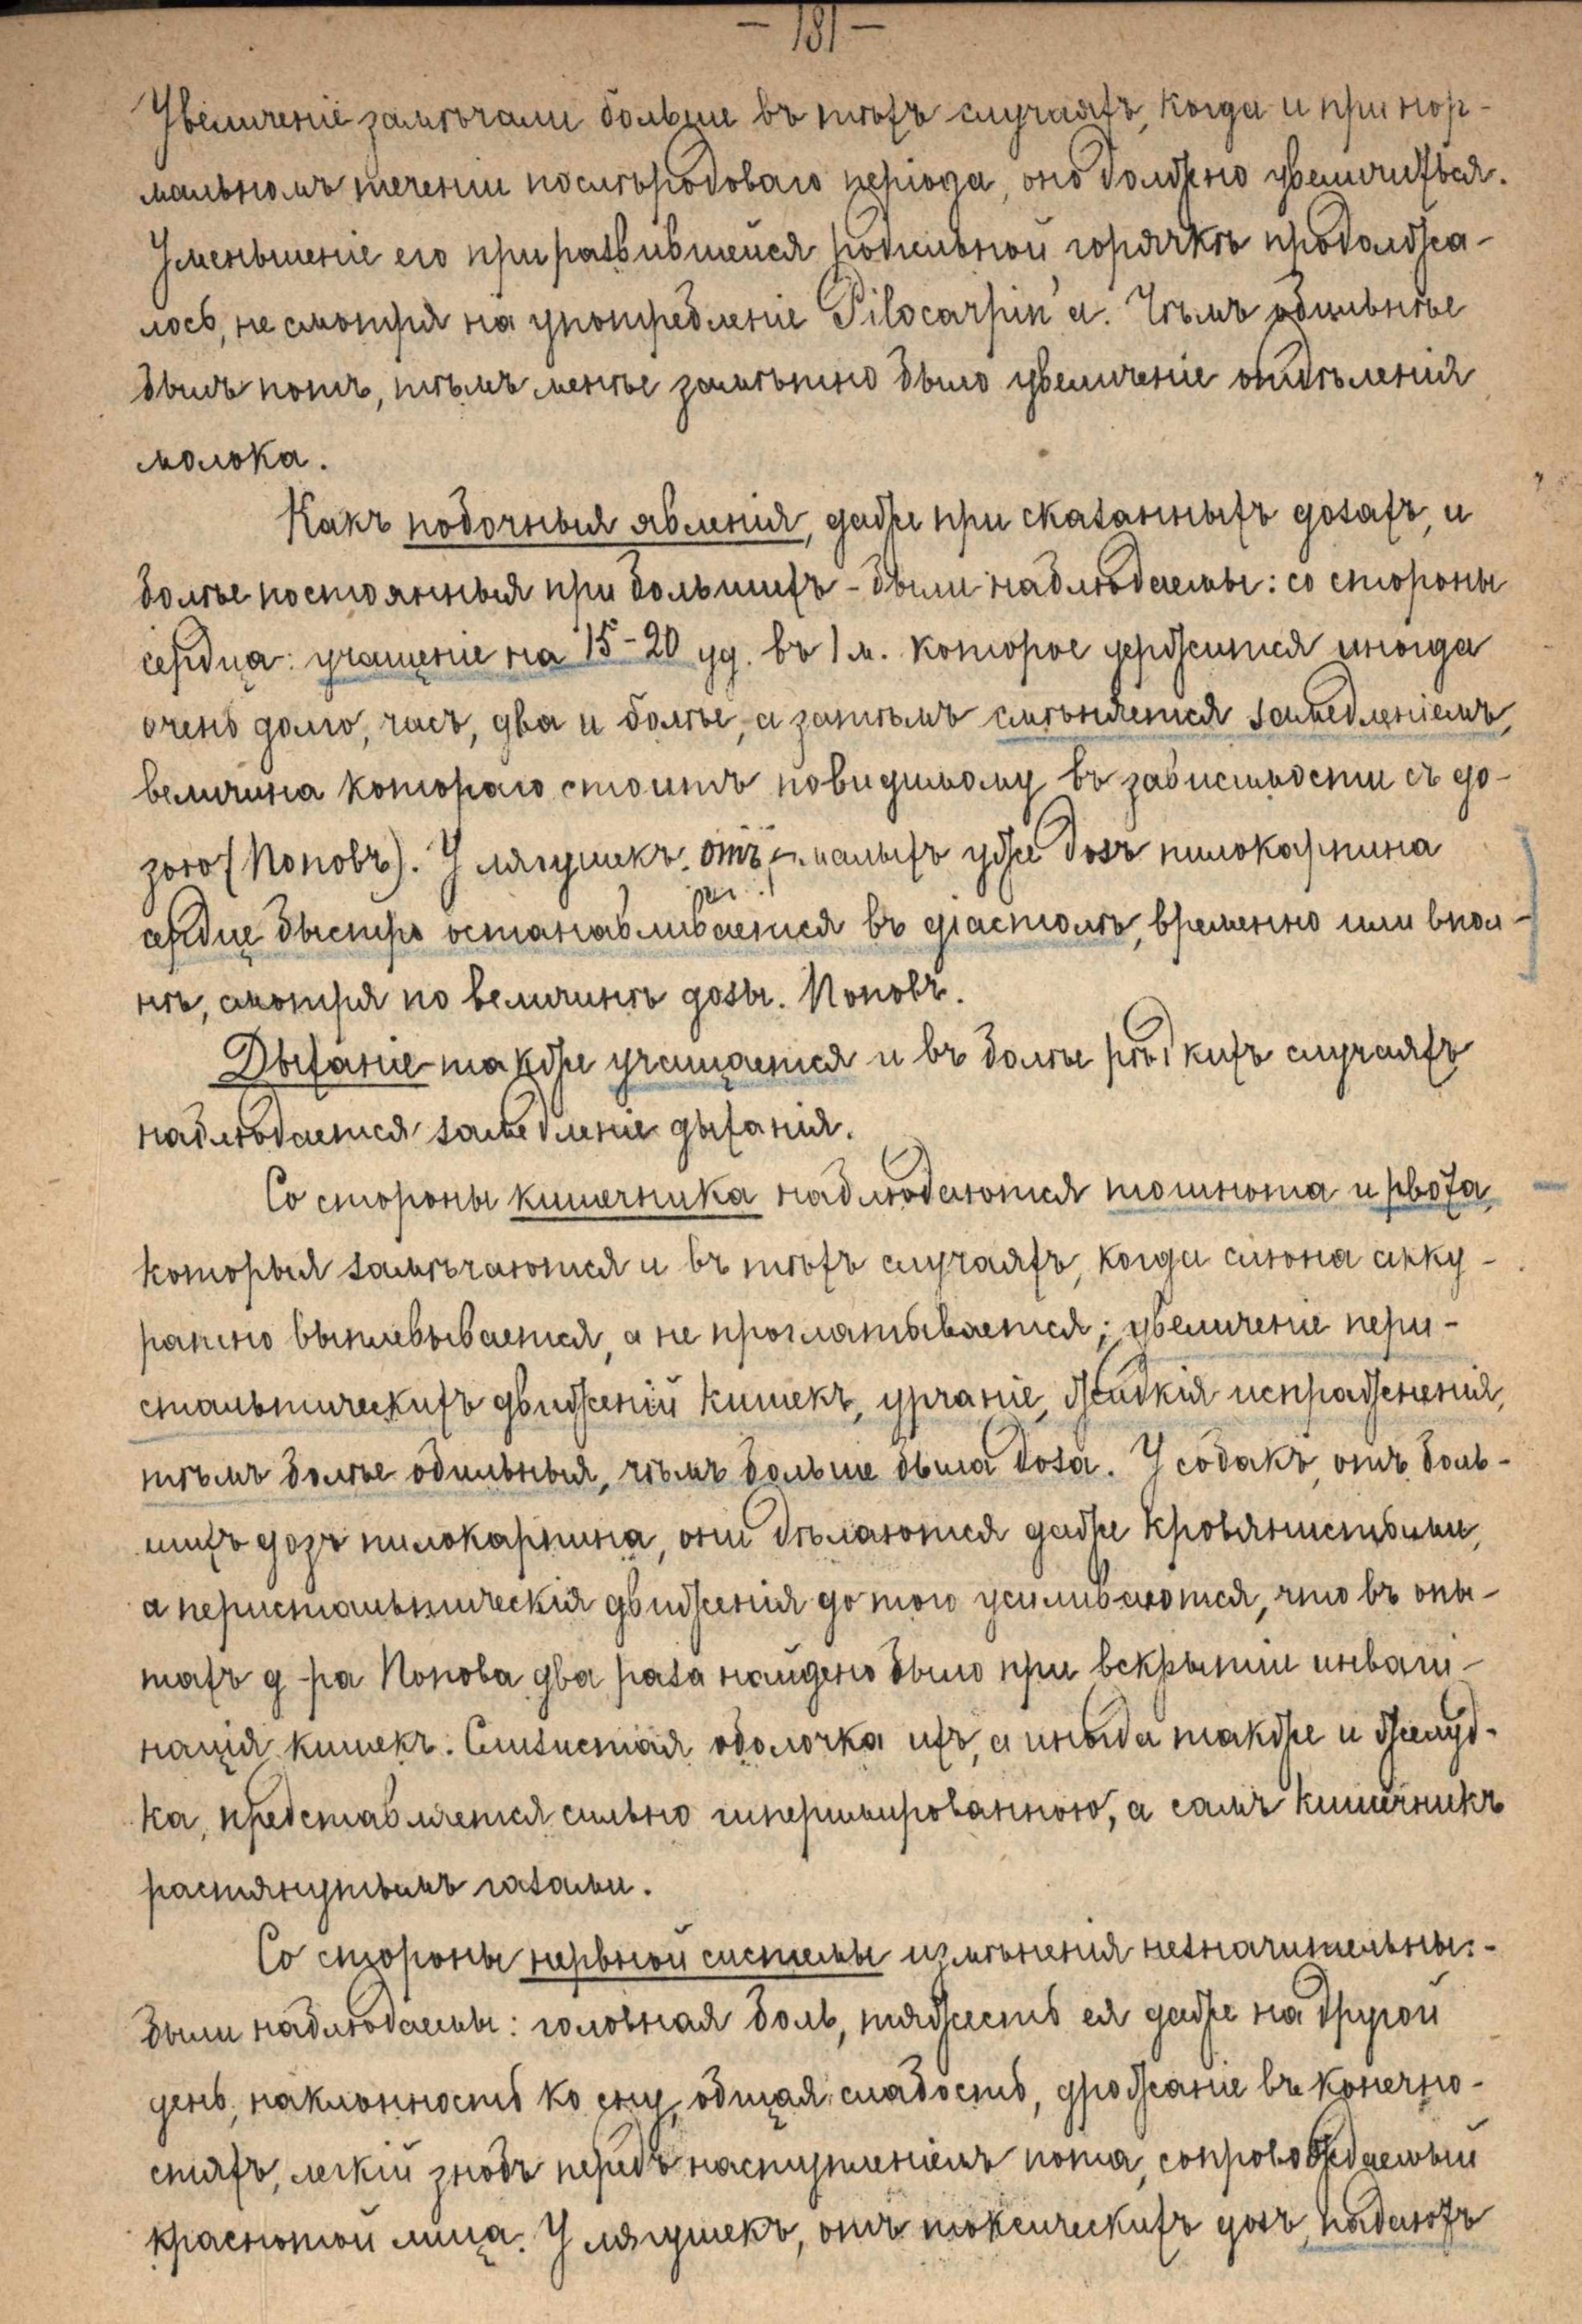 — 181 —
Увеличеніе замѣчали больше въ тѣхъ случаяхъ, когда и при нор-
мальномъ теченіи послѣродоваго періода, оно должно увеличиться.
Уменьшеніе его при развившейся родильной горячкѣ продолжа-
лось, не смотря на употребленіе Pilocarpin'а. Чѣмъ обильнѣе
былъ потъ, тѣмъ менѣе замѣтно было увеличеніе отдѣленія
молока.
Какъ побочныя явленія, даже при сказанныхъ дозахъ, и
болѣе постоянныя при большихъ - были наблюдаемы: со стороны
сердца: учащеніе на 15-20 уд. въ 1 м. которое держится иногда
очень долго, часъ, два и болѣе, а затѣмъ смѣняется замедленіемъ,
величина котораго стоитъ повидимому въ зависимости съ до-
зою (Поповъ). У лягушекъ отъ малыхъ уже дозъ пилокарпина
сердце быстро останавливается въ діастолѣ, временно или впол-
нѣ, смотря по величинѣ дозы. Поповъ.
Дыханіе также учащается и въ болѣе рѣдкихъ случаяхъ
наблюдается замедленіе дыханія.
Со стороны кишечника наблюдаются тошнота и рвота,
которыя замѣчаются и въ тѣхъ случаяхъ, когда слюна акку-
ратно выплевывается, а не проглатывается; увеличеніе пери-
стальтическихъ движеній кишекъ, урчаніе, жидкія испражненія,
тѣмъ болѣе обильныя, чѣмъ больше была доза. У собакъ, отъ боль-
шихъ дозъ пилокарпина, они дѣлаются даже кровянистыми,
а перистальтическія движенія до того усиливаются, что въ опы-
тахъ д-ра Попова два раза найдено было при вскрытіи инваги-
нація кишекъ. Слизистая оболочка ихъ, а иногда также и желуд-
ка, представляется сильно гиперимированною, а самъ кишечникъ
растянутымъ газами.
Со стороны нервной системы измѣненія незначительны:-
были наблюдаемы: головная боль, тяжесть ея даже на другой
день, наклонность ко сну, общая слабость, дрожаніе въ конечно-
стяхъ, легкій знобъ передъ наступленіемъ пота, сопровождаемый
краснотой лица. У лягушекъ, отъ токсическихъ дозъ, падаютъ